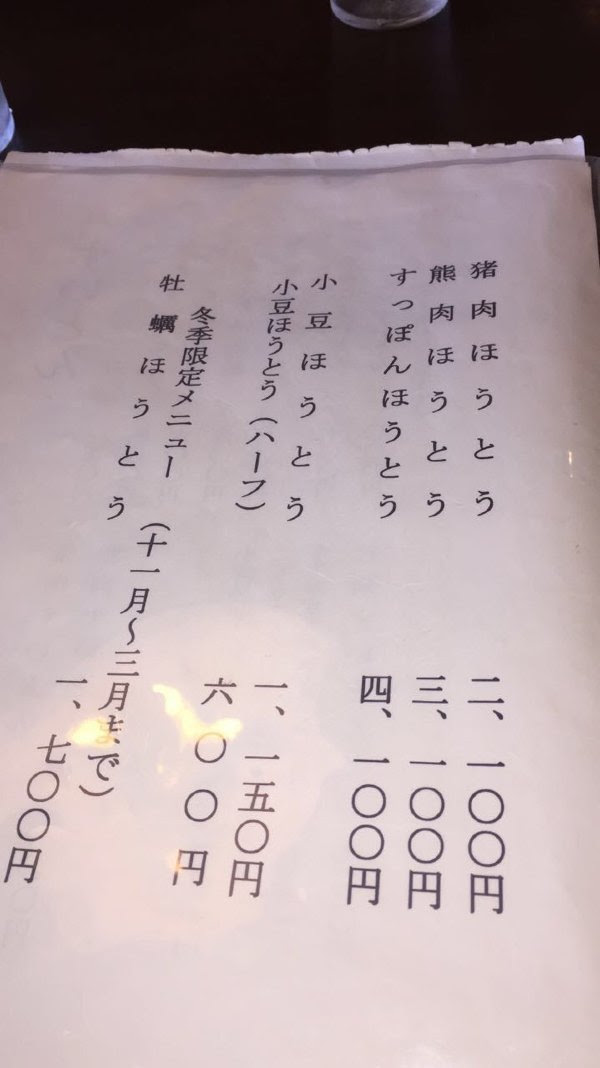 猪肉ほうとう 二、一〇〇円
熊肉ほうとう 三、一〇〇円
すっぽんほうとう 四、一〇〇円
小豆ほうとう 一、一五〇円
小豆ほうとう(ハーフ) 六〇〇円
冬季限定メニュー (十一月〜三月まで)
牡蠣ほうとう 一、七〇〇円